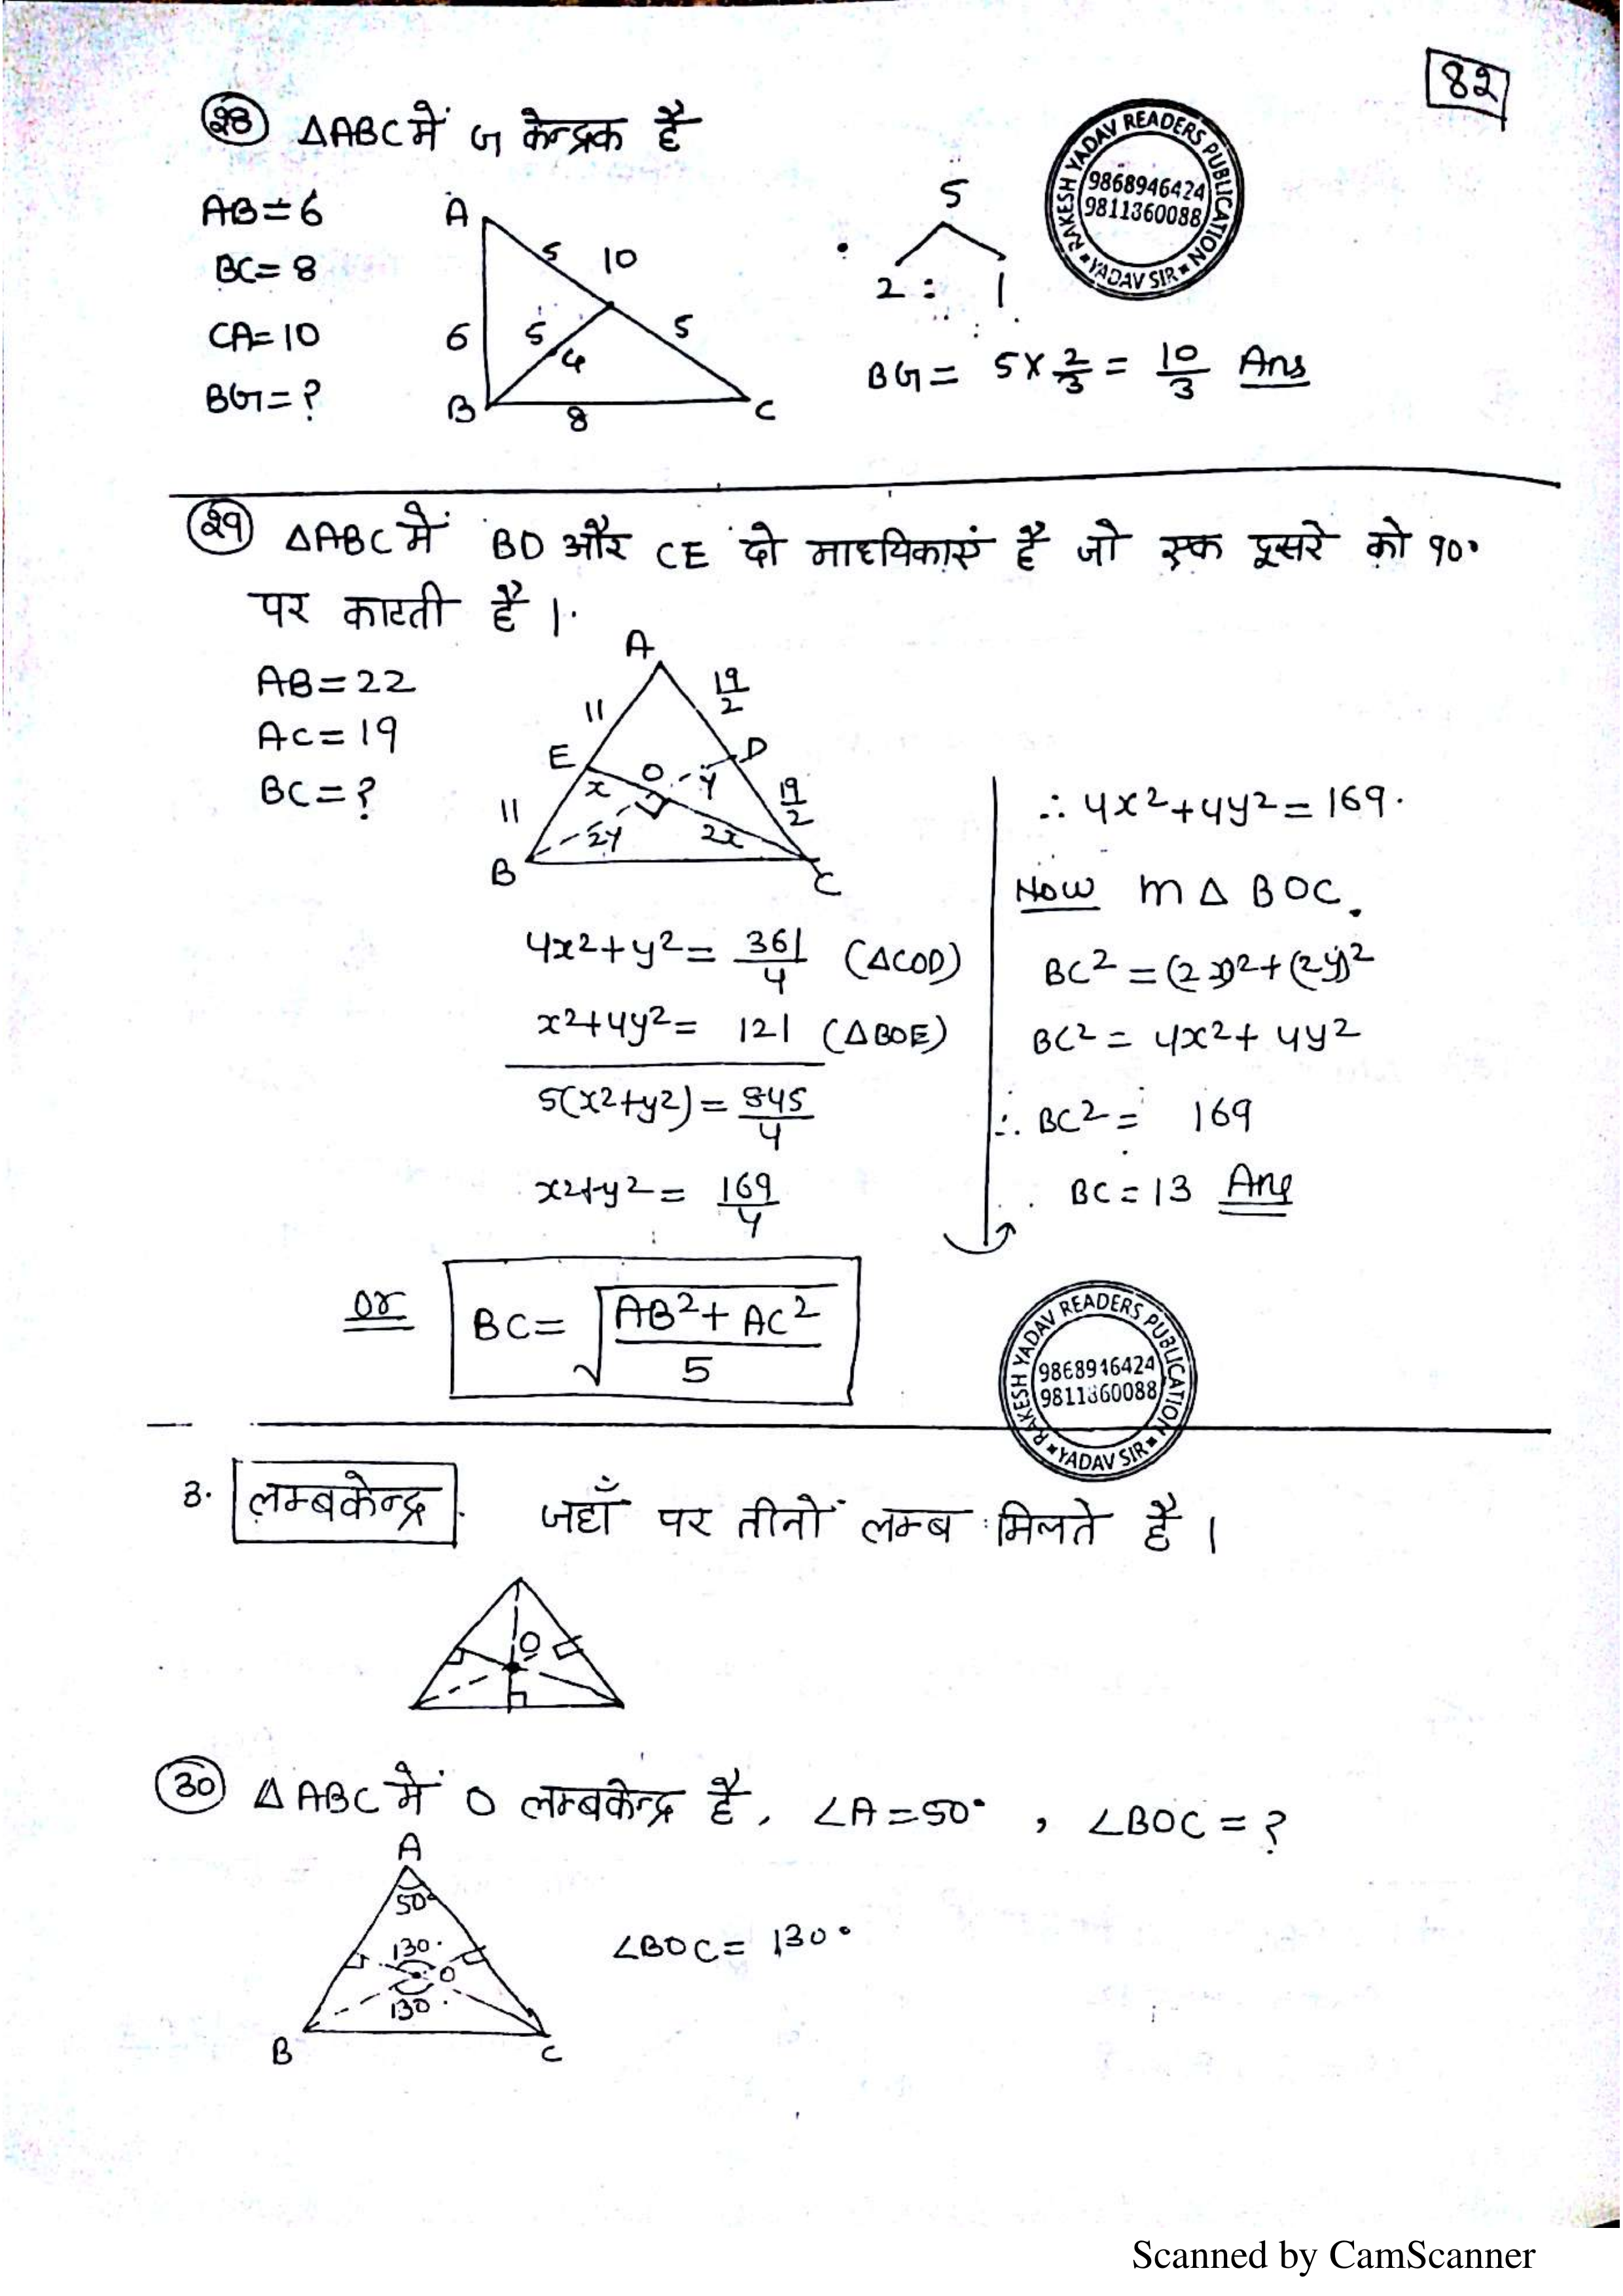 82
28 ΔABC में G केन्द्रक है
AB = 6
BC = 8
CA = 10
BG = ?
A
5
10
5
5
6
G
B
8
C
5
2 : 1
BG = 5 × 2/3 = 10/3 Ans
RAKESH YADAV READERS PUBLICATION
9868946424
9811360088
YADAV SIR
29 ΔABC में BD और CE दो माध्यिकाएं है जो एक दूसरे को 90°
पर काटती है ।
AB = 22
AC = 19
BC = ?
A
11
19/2
E
D
x
O
y
19/2
11
2y
2x
B
C
4x²+y² = 361/4 (ΔCOD)
x²+4y² = 121 (ΔBOE)
5(x²+y²) = 845/4
x²+y² = 169/4
∴ 4x²+4y² = 169.
Now m Δ BOC.
BC² = (2x)²+(2y)²
BC² = 4x²+ 4y²
∴ BC² = 169
BC = 13 Ans
or
BC = √(AB²+ AC²/5)
RAKESH YADAV READERS PUBLICATION
9868946424
9811360088
YADAV SIR
3. लम्बकेन्द्र जहाँ पर तीनों लम्ब मिलते है ।
O
30 ΔABC में O लम्बकेन्द्र है, ∠A = 50° , ∠BOC = ?
A
50°
130°
O
130°
B
C
∠BOC = 130°
Scanned by CamScanner